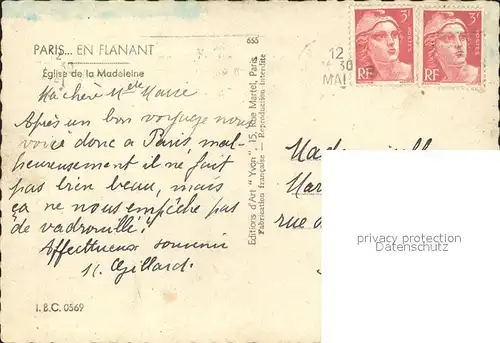 PARIS... EN FLANANT
Église de la Madeleine
655
12
30
MAI
3F
POSTES
RF
3F
POSTES
RF
Ma chère Melle Marie
Après un bon voyage nous
voici donc à Paris, mal-
heureusement il ne fait
pas bien beau, mais
ça ne nous empêche pas
de vadrouiller
Affectueux souvenir
Gillard.
I.B.C. 0569
Editions d'Art "Yvon", 15, Rue Martel, Paris
Fabrication française — Reproduction interdite
Mademoiselle
Mar
rue d
privacy protection
Datenschutz